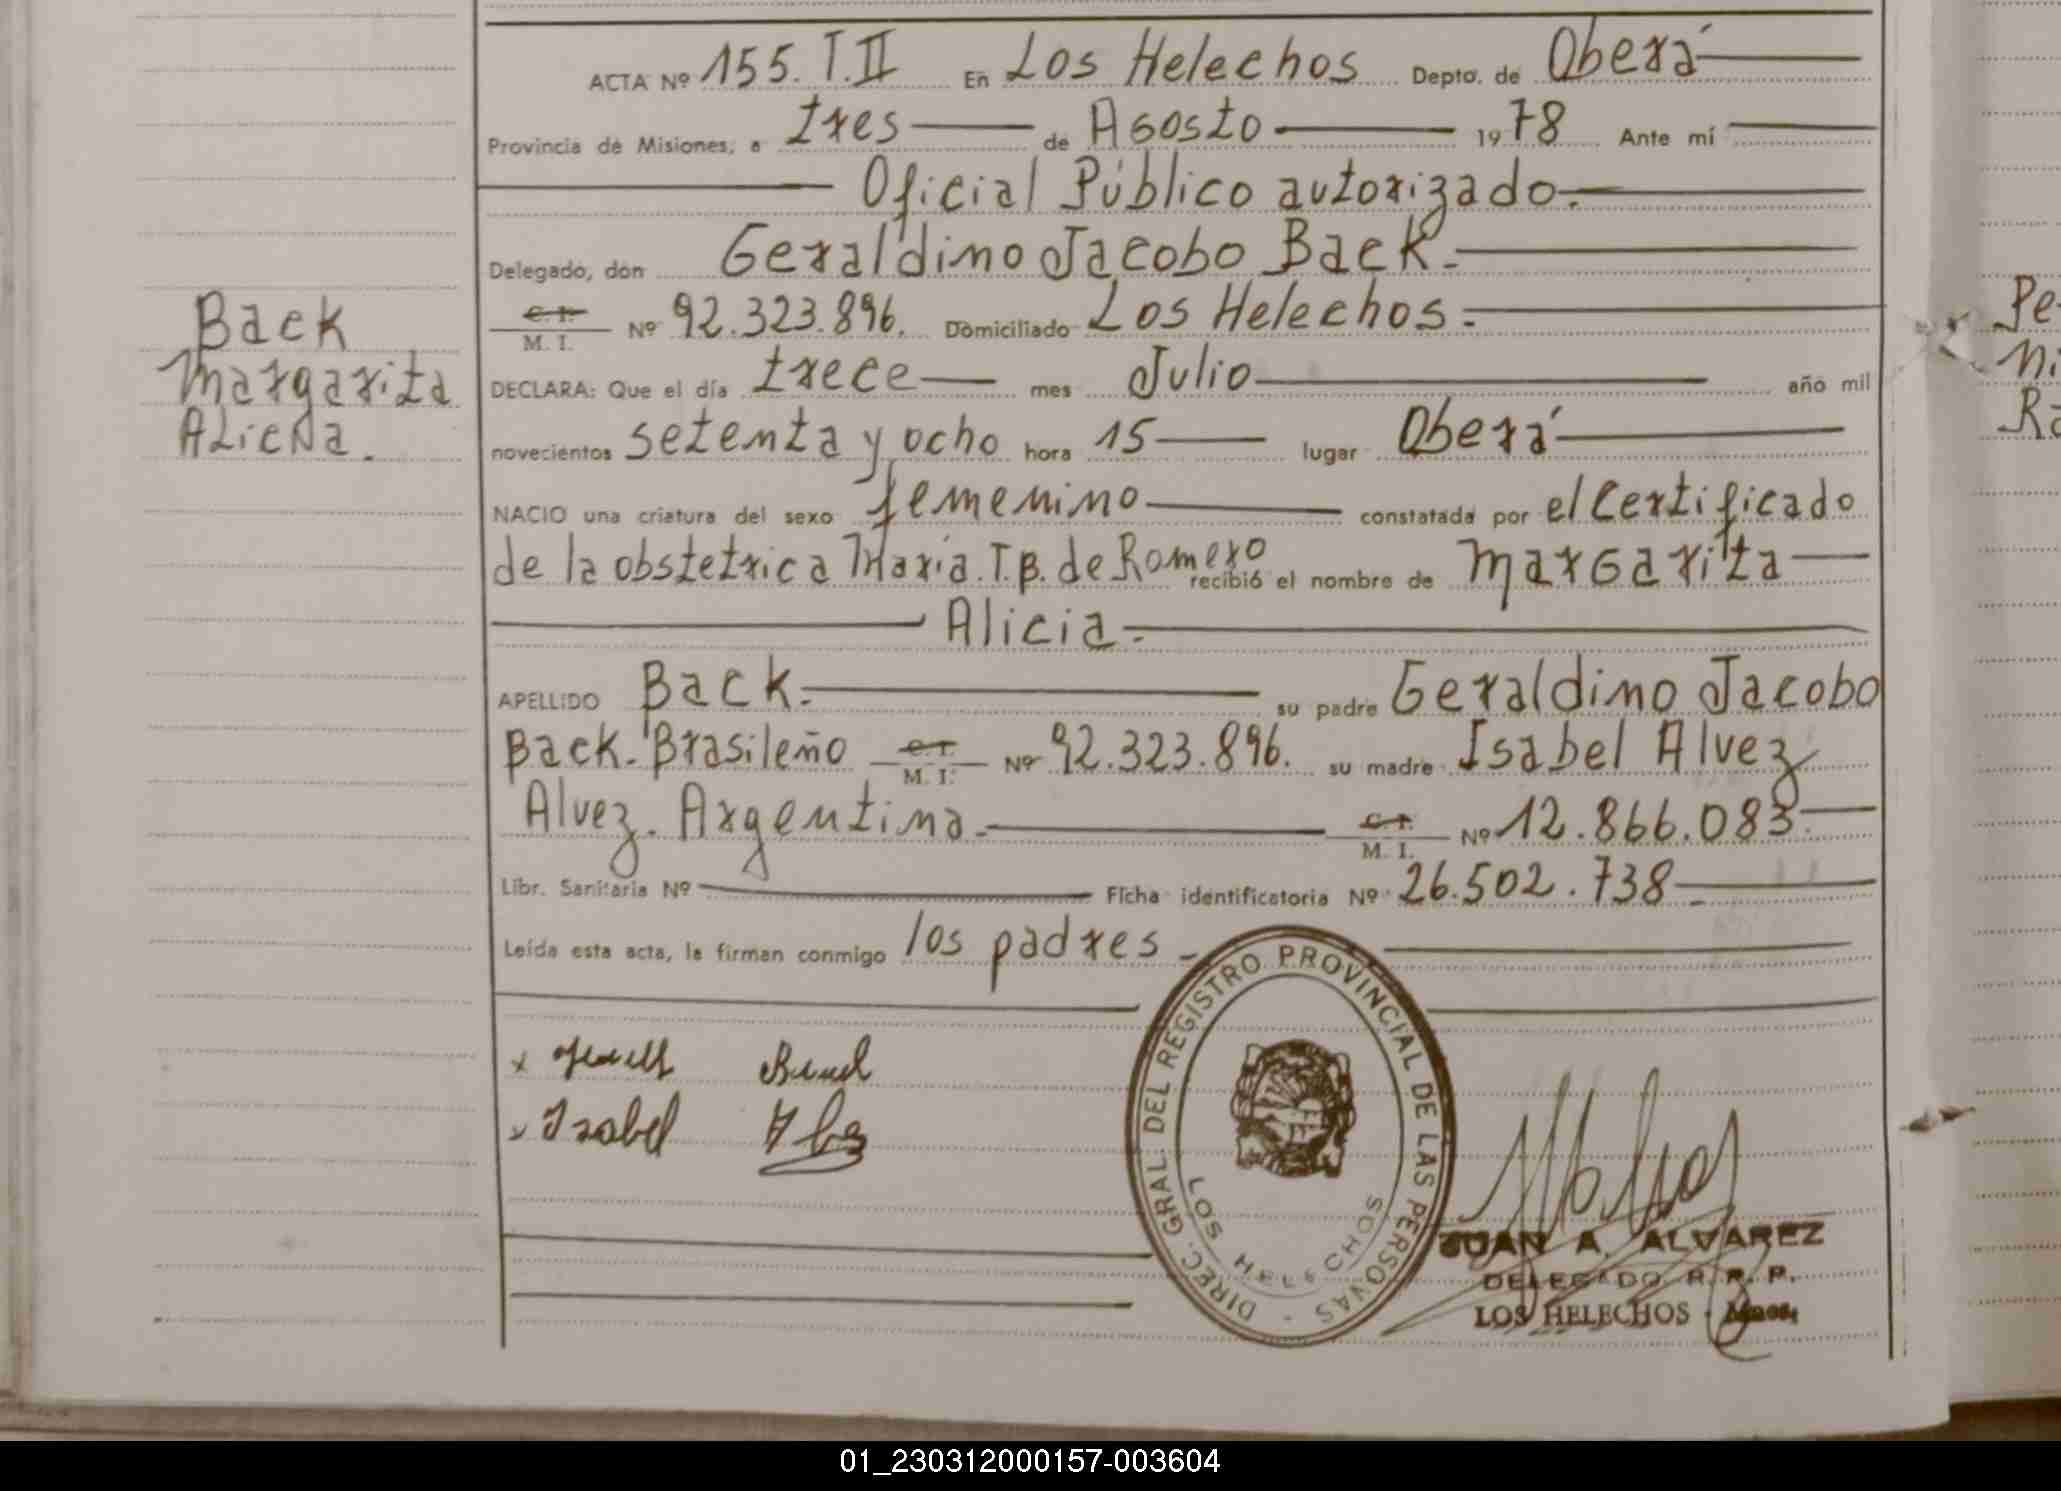 ACTA Nº 155. T. II En Los Helechos Depto. de Oberá
Provincia de Misiones, a tres de Agosto 1978 Ante mí
Oficial Público autorizado.
Delegado, don Geraldino Jacobo Back.
C. I.
M. I. Nº 92.323.896. Domiciliado Los Helechos.
DECLARA: Que el día trece mes Julio año mil
novecientos setenta y ocho hora 15 lugar Oberá
NACIO una criatura del sexo femenino constatada por el Certificado
de la obstetrica María. T. B. de Romero recibió el nombre de Margarita
Alicia.
APELLIDO Back. su padre Geraldino Jacobo
Back. Brasileño C. I. M. I. Nº 92.323.896. su madre Isabel Alvez
Alvez. Argentina. C. I. M. I. Nº 12.866.083.
Libr. Sanitaria Nº Ficha identificatoria Nº 26.502.738
Leída esta acta, la firman conmigo los padres
Back
Margarita
Aliena.
Isabel
DIREC. GRAL. DEL REGISTRO PROVINCIAL DE LAS PERSONAS -
LOS HELECHOS
JUAN A. ALVAREZ
DELEGADO R. P. P.
LOS HELECHOS - Mnes,
Pe
Ni
Ra
01_230312000157-003604